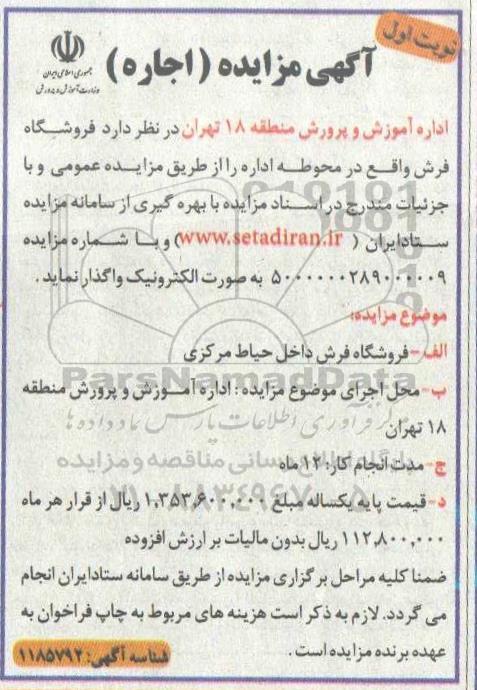 نوبت اول
جمهوری اسلامی ایران
وزارت آموزش و پرورش
آگهی مزایده (اجاره)
اداره آموزش و پرورش منطقه ۱۸ تهران در نظر دارد فروشگاه
فرش واقع در محوطه اداره را از طریق مزایده عمومی و با
جزئیات مندرج در اسناد مزایده با بهره گیری از سامانه مزایده
ستاد ایران ( www.setadiran.ir) و با شماره مزایده
۵۰۰۰۰۰۰۲۸۹۰۰۰۰۰۹ به صورت الکترونیک واگذار نماید.
موضوع مزایده:
الف- فروشگاه فرش داخل حیاط مرکزی
ب- محل اجرای موضوع مزایده: اداره آموزش و پرورش منطقه
۱۸ تهران
ج- مدت انجام کار: ۱۲ ماه
د- قیمت پایه یکساله مبلغ ۱,۳۵۳,۶۰۰,۰۰۰ ریال از قرار هر ماه
۱۱۲,۸۰۰,۰۰۰ ریال بدون مالیات بر ارزش افزوده
ضمنا کلیه مراحل برگزاری مزایده از طریق سامانه ستاد ایران انجام
می گردد. لازم به ذکر است هزینه های مربوط به چاپ فراخوان به
عهده برنده مزایده است.
شناسه آگهی: ۱۱۸۵۷۹۲
ParsNamadData
مرکز فرآوری اطلاعات پارس نماد داده ها
پایگاه اطلاع رسانی مناقصه و مزایده